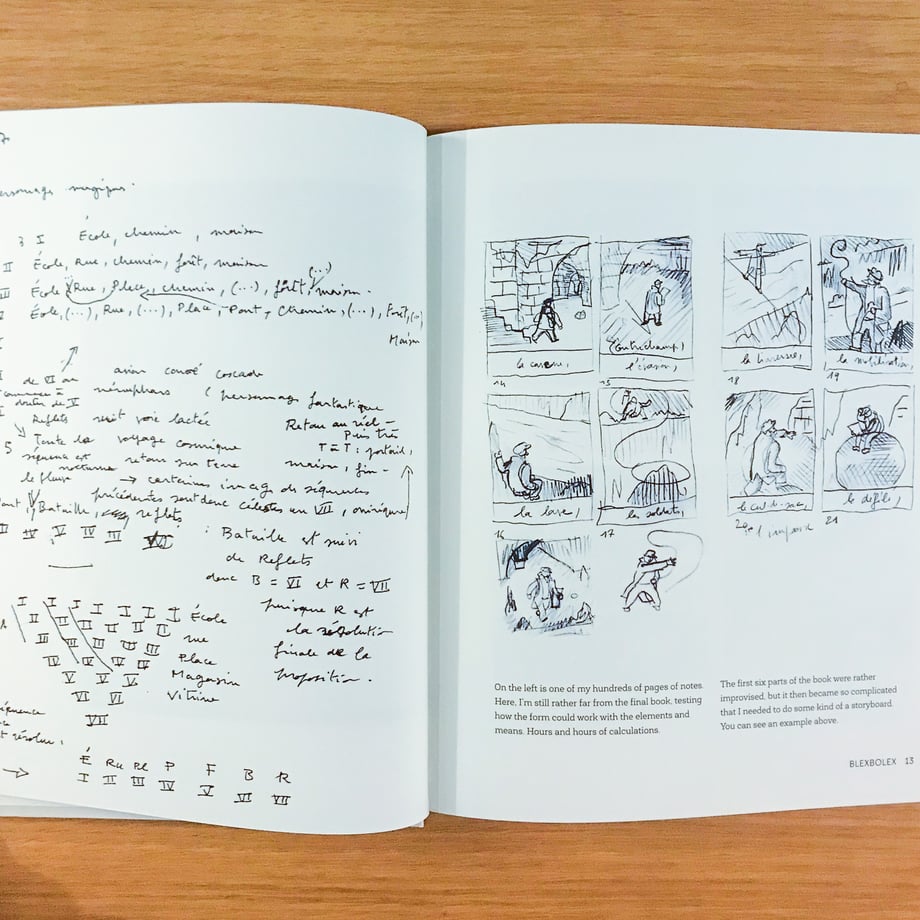 3 I École, chemin, maison
II École, Rue, chemin, forêt, maison
(...)
École Rue, Place, chemin, (...), forêt, maison.
École, (...), Rue, (...), Place, Pont, Chemin, (...), Forêt, (...)
Maison
de VI au
cascade
nénuphars ( personnage fantastique
Reflets suit voie lactée
Retour au réel
Puis très
Toute la voyage cosmique
T = T : portail,
séquence est
nocturne retour sur terre
maison, fin
de pluie
→ certaines images de séquences
précédentes sont donc célestes en VII, onirique
Pont Bataille, reflets
II IV V IV III VII
: Bataille est suivi
de Reflets
donc B = VI et R = VII
puisque R est
la résolution
finale de la
proposition.
I I I I I I I École
II II II II II II rue
III III III III III Place
IV IV IV IV Magasin
V V V Vitrine
VI VI
VII
séquence
É Ru Pl P F B R
I II III IV V VI VII
la caserne,
14
Contrechamp,
l'évasion,
15
la traversée,
18
la mobilisation,
19
la lave,
16
les soldats,
17
le cul-de-sac,
20
le défilé,
21
On the left is one of my hundreds of pages of notes.
Here, I'm still rather far from the final book, testing
how the form could work with the elements and
means. Hours and hours of calculations.
The first six parts of the book were rather
improvised, but it then became so complicated
that I needed to do some kind of a storyboard.
You can see an example above.
BLEXBOLEX 13